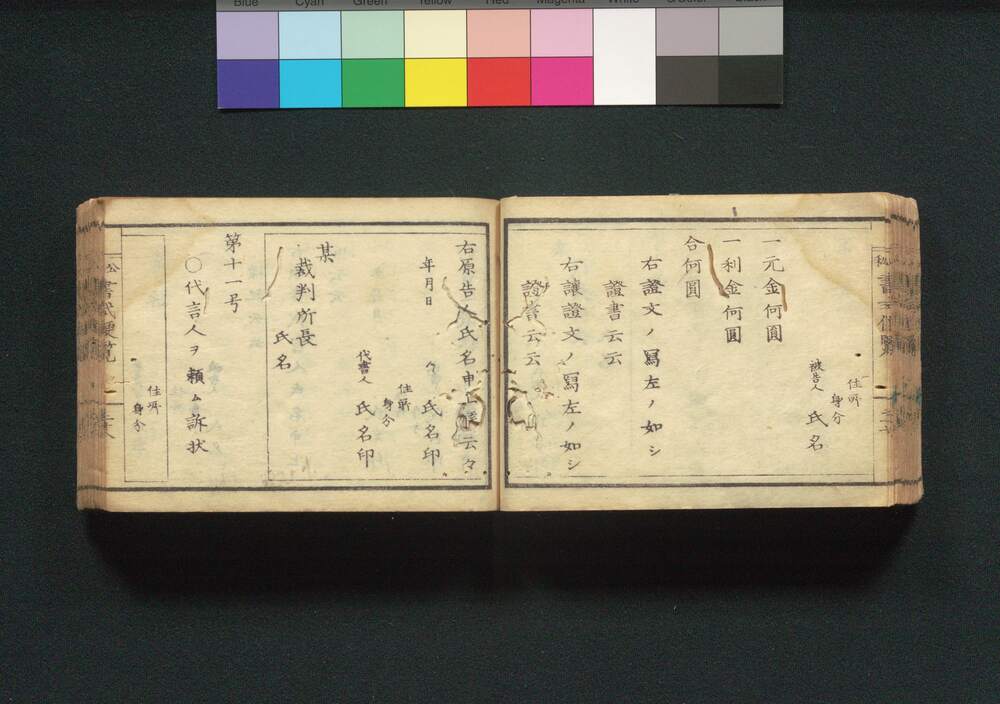 Blue Cyan Green Yellow Red Magenta White 3/Color Black
住所
身分
被告人 氏名
一元金何圓
一利金何圓
合何圓
右證文ノ寫左ノ如シ
證書云云
右讓證文ノ寫左ノ如シ
證書云云
右原告人氏名申上候云々
年月日
住所
身分
々 氏名印
代書人 氏名印
某
裁判所長
氏名
第十一号
〇代言人ヲ頼ム訴状
住所
身分
公
書式便覧